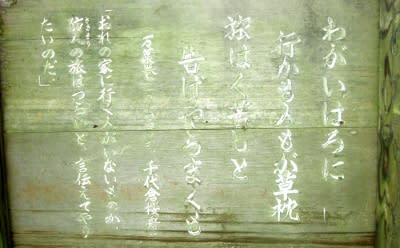 わがいはろに
行かも人もが草枕
旅は苦しと
告げやらまくも
万葉集
「おれの家に行く人がいないものか、
防人の旅はつらいと、言伝えてやり
たいのだ。」